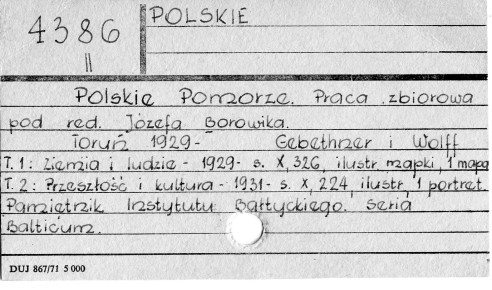 4386
II
POLSKIE
Polskie Pomorze. Praca zbiorowa
pod red. Józefa Borowika.
Toruń 1929- Gebethner i Wolff
T. 1: Ziemia i ludzie - 1929 - s. X, 326, ilustr. mapki, 1 mapa
T. 2: Przeszłość i kultura - 1931 - s. X, 224, ilustr. 1 portret.
Pamiętnik Instytutu Bałtyckiego. Seria
Balticum.
DUJ 867/71 5 000